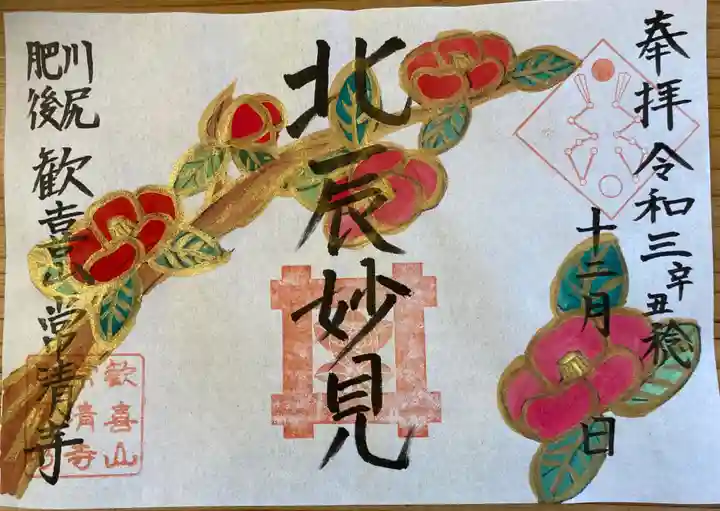 奉拝 令和三辛丑稔
十二月 日
北辰妙見
肥後川尻
歓喜山 常清寺
歓喜山
清寺